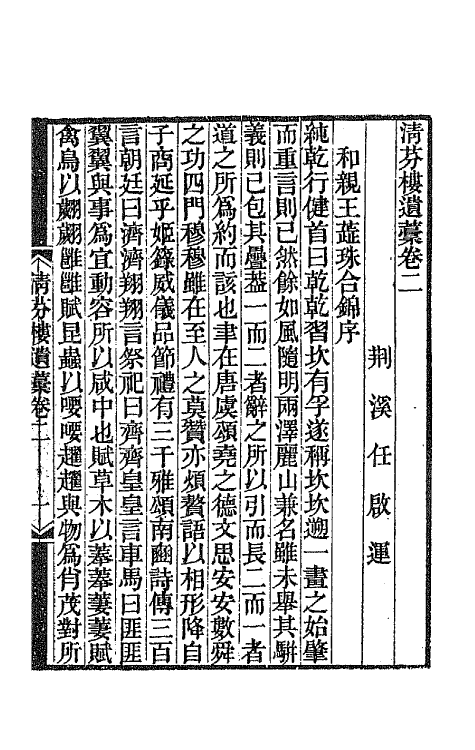 清芬樓遺藳卷二
荆溪任啟運
和親王蕋珠合錦序
純乾行健首曰乾乾習坎有孚遂稱坎坎遡一畫之始肇
而重言則已然餘如風隨明兩澤麗山兼名雖未舉其駢
義則已包其疊葢一而二者辭之所以引而長二而一者
道之所爲約而該也聿在唐虞頌堯之德文思安安數舜
之功四門穆穆雖在至人之莫贊亦煩贅語以相形降自
子商延乎姬籙威儀品節禮有三千雅頌南豳詩傳三百
言朝廷曰濟濟翔翔言祭祀曰齊齊皇皇言車馬曰匪匪
翼翼與事爲宜動容所以咸中也賦草木以菶菶萋萋賦
禽鳥以翽翽雝雝賦昆蟲以喓喓趯趯與物爲肖茂對所
清芬樓遺藳卷二
一